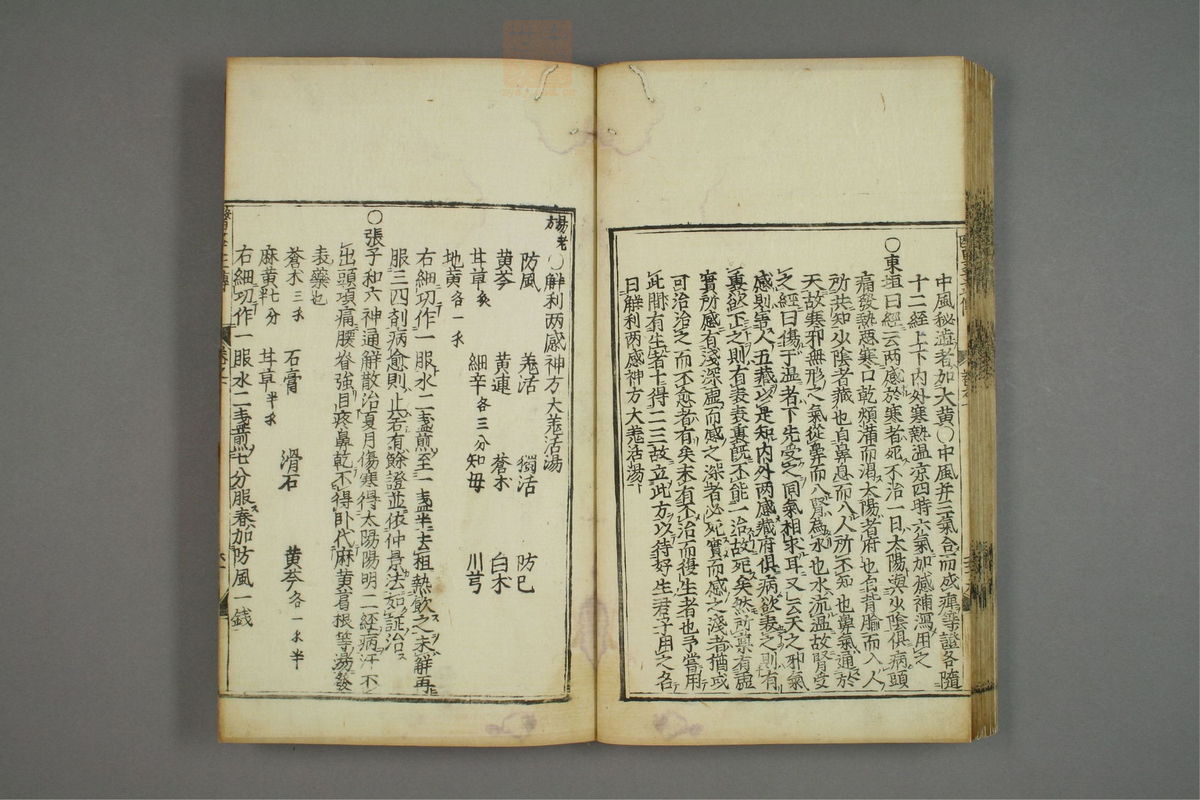 中風秘澁者加大黄〇中風并三氣合而成痺等證各隨
十二經上下内外寒熱温凉四時六氣加減補瀉用之
〇東垣曰經云两感於寒者死不治一日太陽與少陰俱病頭
痛發熱惡寒口乾煩滿而渇太陽者府也自背腧而入人
所共知少陰者藏也自鼻息而入人所不知也鼻氣通於
天故寒邪無形之氣從鼻而入腎為水也水流温故腎受
之經曰傷于温者下先受之同氣相求耳又云天之邪氣
感則害人五藏以是知内外两感藏府俱病欲表之則有
裏欲下之則有表表裏既不能一治故死矣然所禀有虚
實所感有淺深虚而感之深者必死實而感之淺者猶或
可治治之而不愈者有矣未有不治而復生者也予嘗用
此間有生者十得二三故立此方以待好生君子用之名
曰解利两感神方大羗活湯
易老方〇解利两感神方大羗活湯
防風 羗活 獨活 防已
黄芩 黄連 蒼朮 白朮
甘草炙 細辛各三分 知毋 川芎
地黄各一ホ
右細切作一服水二盞煎至一盞半去柤熱飲之未解再
服三四剤病愈則止若有餘證並依仲景法如証治
〇張子和六神通解散治夏月傷寒得太陽陽明二經病汗不
出頭項痛腰脊強目疼鼻乾不得卧代麻黄葛根等湯發
表藥也
蒼朮三ホ 石膏 滑石 黄芩各一ホ半
麻黄七分 甘草半ホ
右細切作一服水二盞煎七分服春加防風一錢